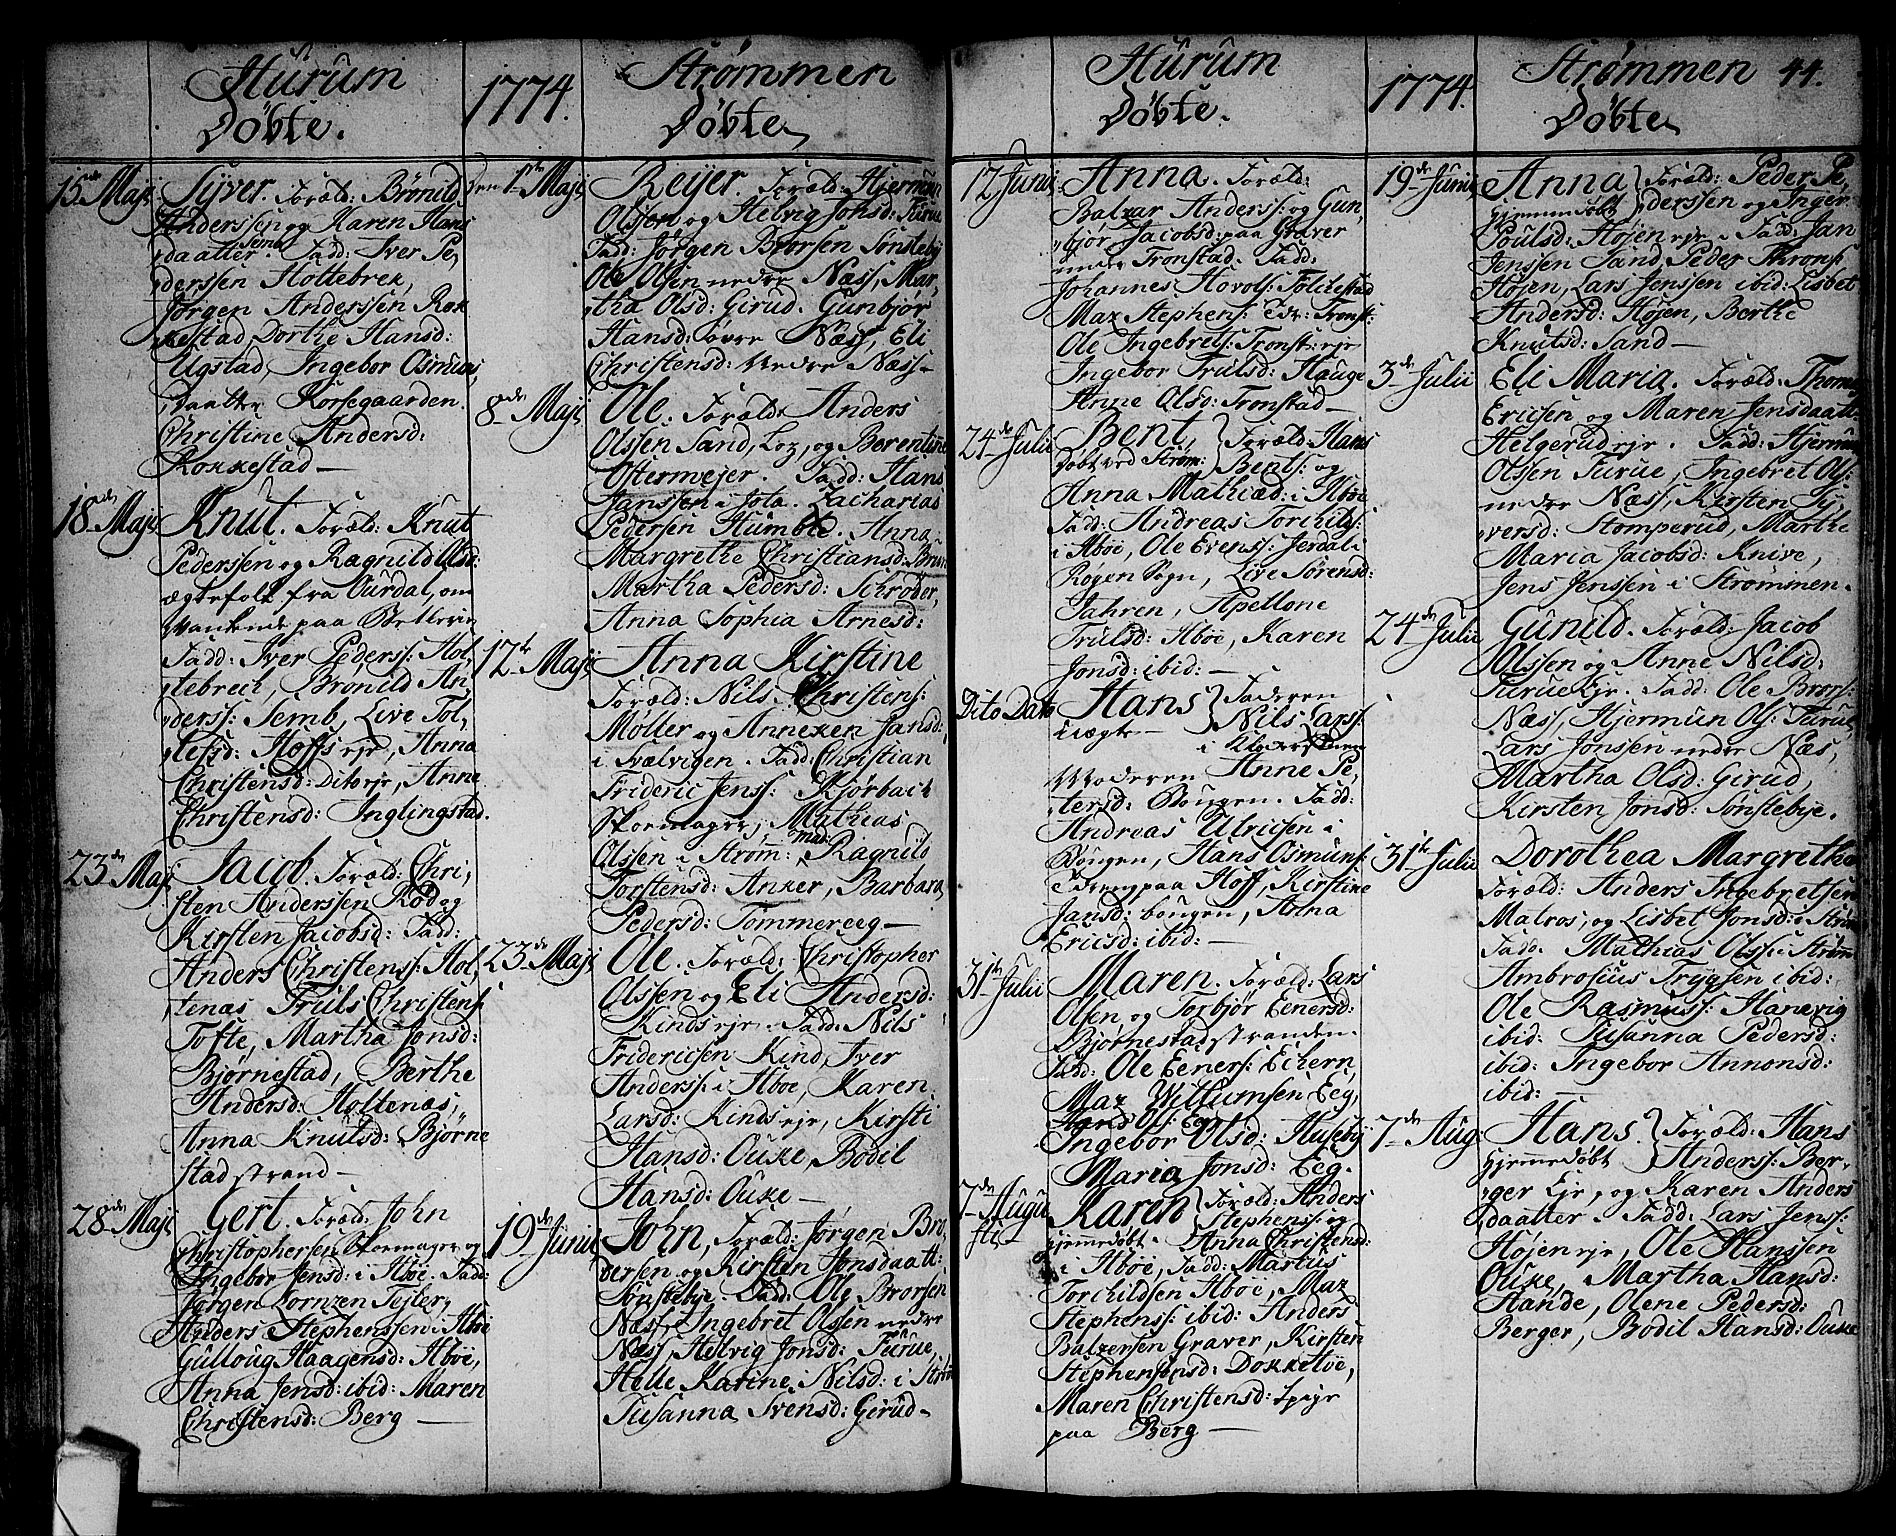 Hurum
Døbte.
15de Maji
Syver. Foræld: Brønild
Anderssen og Karen Hans
daatter Semb. Fadd: Iver Pe,
derssen Holtebrek,
Jørgen Anderssen Rok
kestad, Dorthe Hansd:
Ugstad, Ingebor Osmuns,
daatter Korsegaarden.
Christine Andersd:
Rokkestad —
18de Maji
Knut. Foræld: Knut
Pederssen og Ragnild Olsd:
ægtefolk fra Ourdal, om
vankende paa Betlerie
Fadd: Iver Peders: Hol,
tebrech, Brønild An,
ders: Semb, Live Tol,
lefsd: Hoffs eje, Anna
Christensd: Ditoeje, Anne
Christensd: Inglingstad.
23de Maji
Jacob. Foræld: Chri,
sten Anderssen Rød og
Kirsten Jacobsd: Fadd:
Anders Christens: Hol,
tenæs, Truls Christens:
Tofte, Martha Jonsd:
Bjørnestad, Berthe
Andersd: Holtenæs,
Anna Knutsd: Bjørne
stadstrand —
28de Maji
Gert. Foræld: John
Christophersen Skomager og
Ingebor Jensd: i Aboe. Fadd:
Jørgen Lornzen Tejler,
Anders Stephenssen i Aboe
Gulloug Haagensd: Aboe,
Anna Jensd: ibid: Maren
Christensd: Berg —
1774.
Strømmen
Døbte
Den 1ste Maji
Reijer. Foræld: Hjermun
Olssen og Helvig Jonsd: Furue
Fadd: Jørgen Brorsen Sønsteby
Ole Olsen nedre Næss, Mar,
tha Olsd: Girud. Gunbjør
Hansd: øvre Næss, Eli
Christensd: Nedre Næss —
8de Maji
Ole. Foræld: Anders
Olssen Sand, Loz, og Berentine
Ostermejer. Fadd: Hans
Janssen i Jota. Zacharias
Pedersen Humble. Anna
Margrethe Christiansd: Brun
Martha Pedersd: Schrøder,
Anna Sophia Arnesd:
12te Maji
Anna Kirstine
Foræld: Nils Christens:
Møller og Anneken Jansd:
i Svelvigen. Fadd: Christian
Frideric Jens: Kjørbach
Skomager, Mathias
Olssen i Strøm: Mad: Ragnild
Torstensd: Anker, Barbara
Pedersd: Tømmereeg —
23de Maji
Ole. Foræld: Christopher
Olssen og Eli Andersd:
Kinds eje. Fadd: Nils
Fridericsen Kind, Iver
Anders: i Aboe, Karen
Larsd: Kinds eje, Kirsti
Hansd: Ouke, Bodil
Hansd: Ouke —
19de Junii
John, Foræld: Jørgen Bro,
versen og Kirsten Jonsdaatt:
Sønstebye. Fadd: Ole Brorsen
Næss, Ingebret Olssen nedre
Næss, Helvig Jonsd: Furue,
Helle Karine Nilsd: i Strøm
Susanna Svensd: Girud —
Hurum
Døbte.
12 Junii
Anna. Foræld:
Balzar Anders: og Gun,
bjør Jacobsd: paa Graver
under Tronstad. Fadd:
Johannes Hovols: Follestad
Maz Stephens: Edr: Tronst:
Ole Ingebrets: Tronst: eje
Ingebor Trulsd: Hauge
Anne Olsd: Tronstad —
24de Julii
Bent, Foræld: Hans
Døbt ved Strøm: Bents: og
Anna Mathiæd: i Aboe
Fadd: Andreas Torchils:
i Aboe, Ole Evens: Jerdal i
Røgen Sogn, Live Sørensd:
Jahren, Apellone
Trulsd: Aboe, Karen
Jonsd: ibid: —
Dito Dato
Hans Faderen
uægte — Nils Lars:
Moderen Anne Pe,
tersd: Bougen. Fadd:
Andreas Ulricsen i
Bougen, Hans Osmuns:
i dreng paa Hoff, Kirstine
Jansd: bougen, Anna
Ericsd: ibid: —
31te Julii
Maren. Foræld: Lars
Olsen og Torbjør Eenersd:
Bjørnestadstranden.
Fadd: Ole Eeners: Eichern,
Maz Willumsen Eeg,
Ingebor Olsd: Huseby
Maria Jonsd: Eeg.
7de Augu
sti
Karen Foræld: Anders
Stephens: og
hjemmedøbt. Anna Christensd:
i Aboe, Fadd: Martus
Torchildsen Aboe, Maz
Stephens: ibid: Anders
Balzersen Graver, Kirsten
Stephensd: Dokketøe,
Maren Christensd: Pige
paa Berg —
1774.
Strømmen 44.
Døbte
19de Junii
Anna Foræld: Peder Pe,
hjemmedøbt derssen og Inger
Poulsd: Højen eje. Fadd: Jan
Jenssen Sand, Peder Throns:
Højen, Lars Jenssen ibid: Lisbet
Andersd: Højen, Berthe
Knutsd: Sand —
3de Julii
Eli Maria. Foræld: Thomas
Ericsen og Maren Jensdaatt:
Helgerud eje. Fadd: Hjermun
Olssen Furue, Ingebret Ols:
nedre Næss, Kirsten Sy,
versd: Stomperud, Marthe
Maria Jacobsd: Knive,
Jens Jenssen i Strømmen.
24de Julii
Gunild. Foræld: Jacob
Olssen og Anne Nilsd:
Furue Eje. Fadd: Ole Brors:
Næss, Hjermun Ols: Furue
Lars Jonssen nedre Næs,
Martha Olsd: Girud,
Kirsten Jonsd: Sønstebye.
31te Julii
Dorothea Margrethe
Foræld: Anders Ingebretsen
Matros, og Lisbet Jonsd: i Strøm
Fadd: Mathias Ols: i Strøm
Ambrosius Trygsen ibid:
Ole Rasmus: Hanevig
ibid: Susanna Pedersd:
ibid: Ingebor Annonsd:
ibid: —
7de Aug:
Hans. Foræld: Hans
hjemmedøbt Anders: Ber,
ger Eje, og Karen Anders
daatter. Fadd: Lars Jens:
Højen eje, Ole Hanssen
Ouke, Martha Hansd:
Hande, Olene Pedersd:
Berger, Bodil Hansd: Ouke